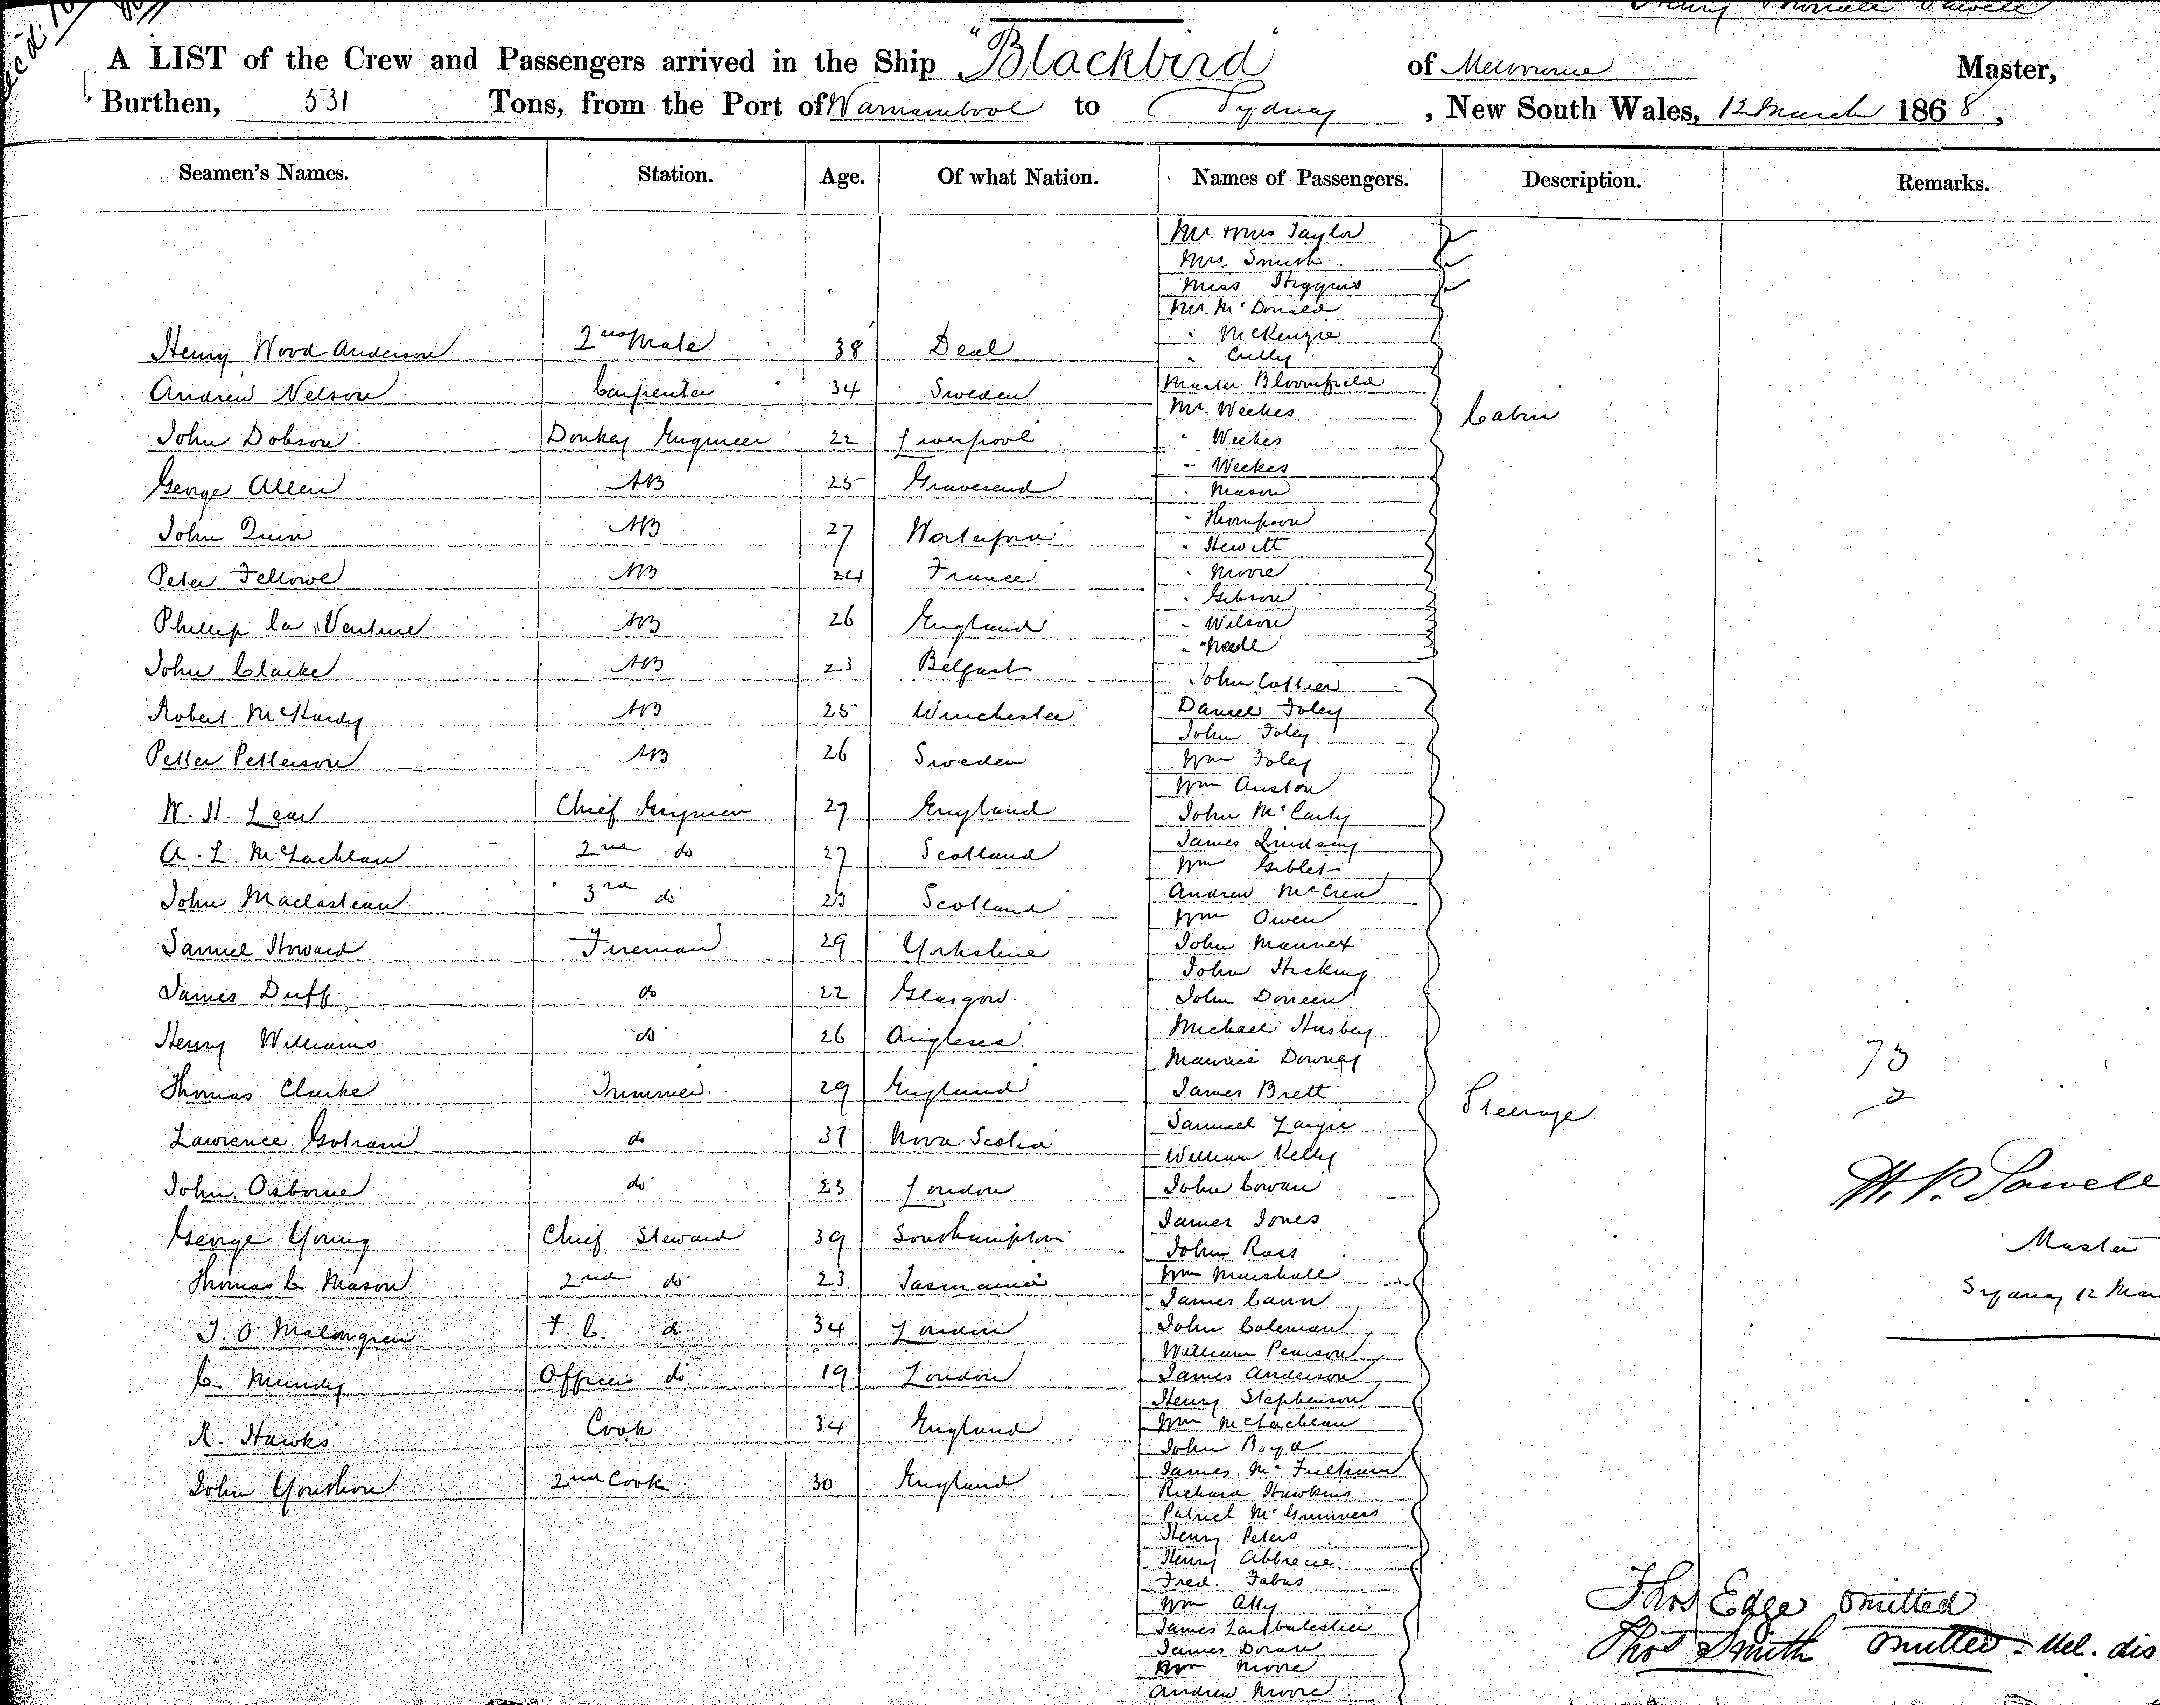 A LIST of the Crew and Passengers arrived in the Ship "Blackbird" of Melbourne Master,
Burthen, 531 Tons, from the Port of Warnambool to Sydney, New South Wales, 12 March 1868,
Seamen's Names. Station. Age. Of what Nation. Names of Passengers. Description. Remarks.
Henry Wood Anderson 2nd Mate 38 Deal
Andrew Nelson Carpenter 34 Sweden
John Dobson Donkey Engineer 22 Liverpool
George Allen AB 25 Gravesend
John Quin AB 27 Waterford
Peter Fellowe AB 24 France
Phillip la Venture AB 26 England
John Clarke AB 23 Belfast
Robert McHardy AB 25 Winchester
Petter Petterson AB 26 Sweden
W. H. Lear Chief Engineer 27 England
A. L. McLachlan 2nd do 27 Scotland
John 3rd do 23 Scotland
Samuel Howard Fireman 29 Yorkshire
James Duff do 22 Glasgow
Henry Williams do 26 Anglesea
Thomas Clarke Trimmer 29 England
Lawrence Gotram do 37 Nova Scotia
John Osborne do 23 London
George Young Chief Steward 39 Southampton
Thomas C Mason 2nd do 23 Tasmania
J. O Malmgren F. C. do 34 London
C. Mundy Officers do 19 London
R. Hawks Cook 34 England
John 2nd Cook 30 England
Mr & Mrs Taylor
Mrs Smith
Miss Higgins
Mr McDonald
" McKenzie
" Cully
Master Bloomfield
Mr. Weekes
" Weekes
" Weekes
" Mason
" Thompson
" Hewitt
" Moore
" Gibson
" Wilson
" Neele
Cabin
John Collier
Daniel Foley
John Foley
Wm Foley
Wm Auston
John McCarty
James Lindsay
Wm Giblet
Andrew McCrea
Wm Owen
John Mannex
John Hicking
John Doneen
Michael Husbey
Maurice Downey
James Brett
Samuel
William Kelly
John Cowan
James Jones
John Ross
Wm Marshall
James Cann
John Coleman
William Pearson
James Anderson
Henry Stephenson
Wm McLachlan
John Boyd
James Mc
Richard Hawkins
Patrick McGuinness
Henry Peters
Henry
Fred. Fabus
Wm Ally
James
James Doran
Wm Moore
Andrew Moore
Steerage
73
2
H. P. Sawell
Master
Sydney 12 Mar
Thos Edge omitted
Thos Smith omitted = Mel. dis